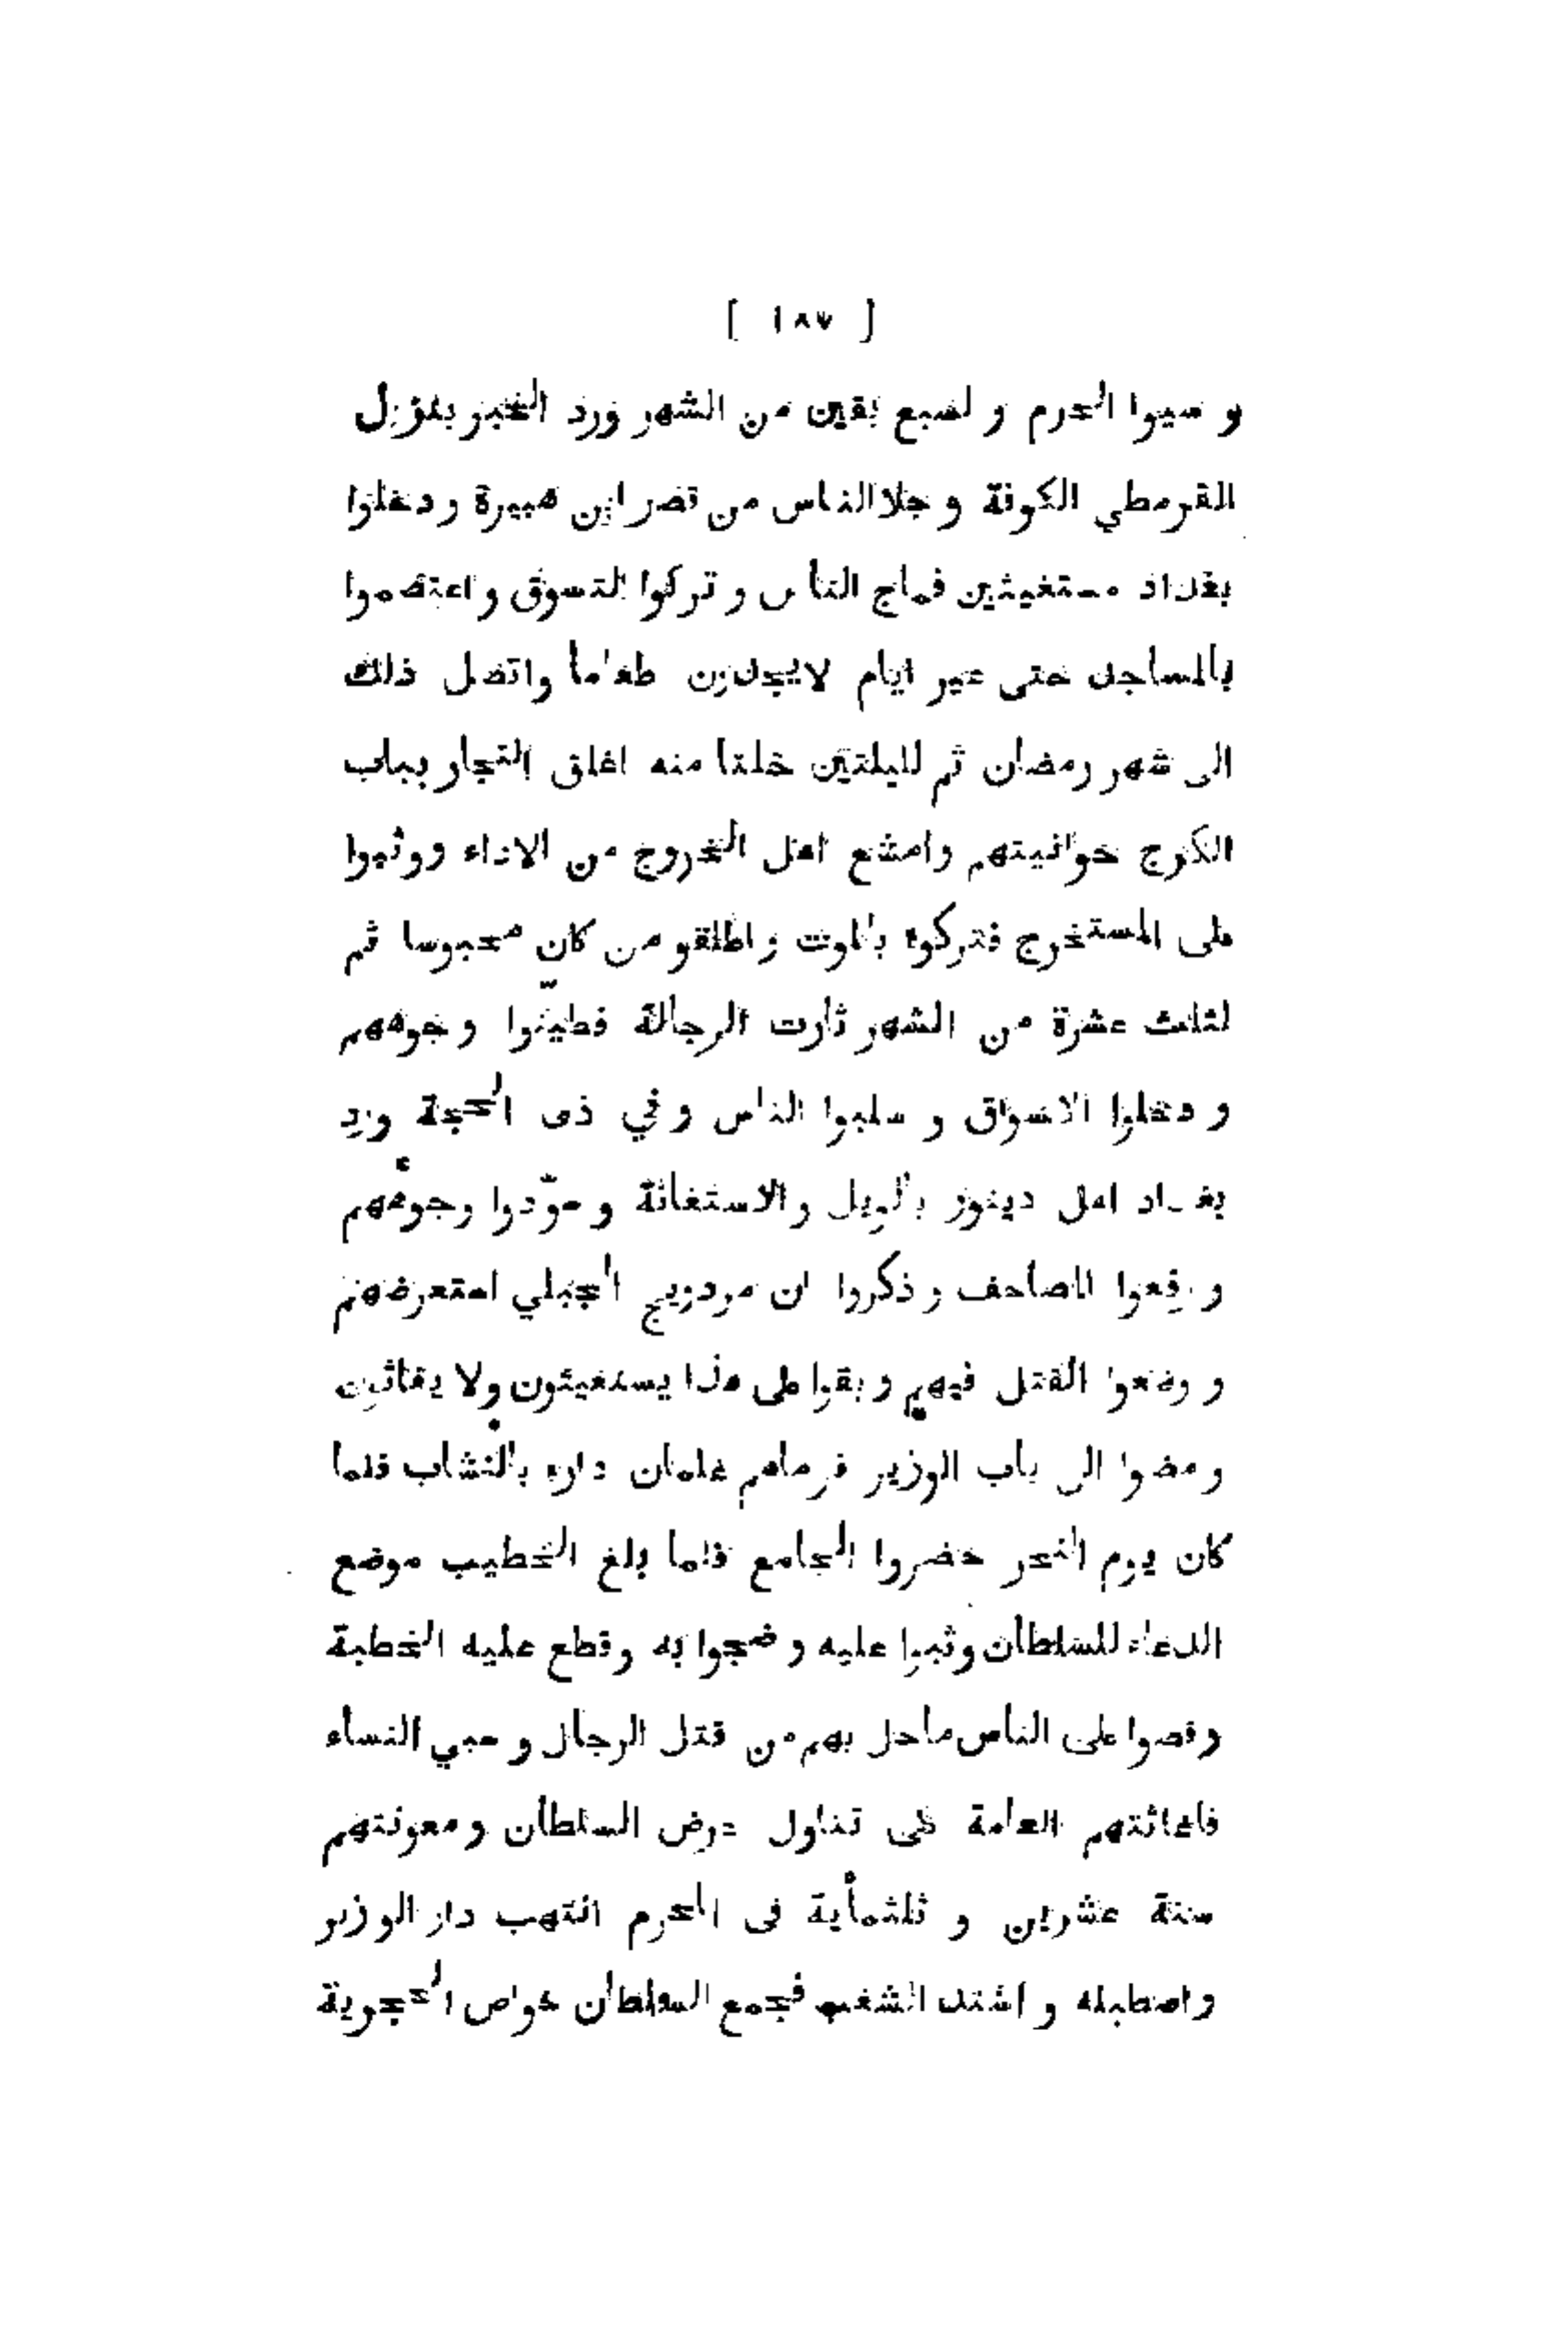 [ ١٨٧ ]
و سبوا الحرم و لسبع بقين من الشهر ورد الخبر بنزول
القرمطي الكوفة و جلا الناس من قصر ابن هبيرة و دخلوا
بغداد مستغيثين فماج الناس و تركوا التسوق و اعتصموا
بالمساجد حتى عبر ايام لايجدون طعاماً واتصل ذلك
الى شهر رمضان ثم لليلتين خلتا منه اغلق التجار بباب
الكرخ حوانيتهم وامتنع اهل الخروج من الاداء ووثبوا
على المستخرج فتركوه بالموت و اطلقو من كان محبوسا ثم
لثلث عشرة من الشهر ثارت الرجالة فطيّنوا وجوههم
و دخلوا الاسواق و سلبوا الناس و في ذى الحجة ورد
بغداد اهل دينور بالويل والاستغاثة و سوّدوا وجوههم
و رفعوا المصاحف و ذكروا ان مردويج الجبلي استعرضهم
و وضعوا القتل فيهم و بقوا على هذا يستغيثون ولا يغاثون
و مضوا الى باب الوزير فرماهم غلمان داره بالنشاب فلما
كان يوم النحر حضروا الجامع فلما بلغ الخطيب موضع
الدعاء للسلطان وثبوا عليه و ضجوا به وقطع عليه الخطبة
وقصوا على الناس ماحل بهم من قتل الرجال و سبي النساء
فاعانتهم العامة على تناول عرض السلطان و معونتهم
سنة عشرين و ثلثماية فى المحرم انتهب دار الوزير
واصطبله و اشتد الشغب فجمع السلطان خواص الحجرية